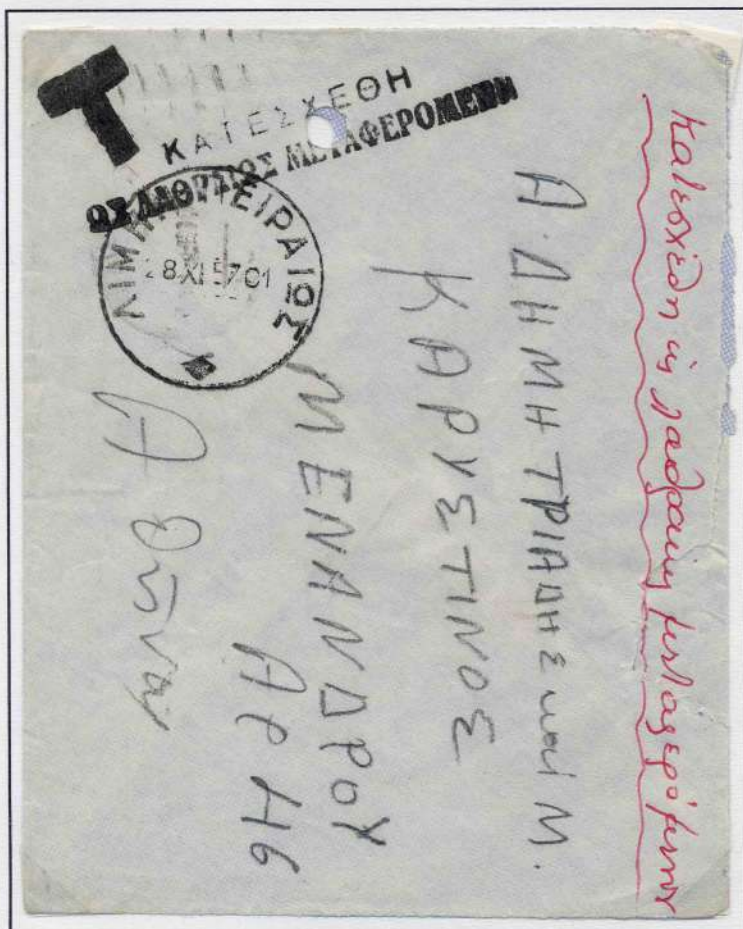 Τ
ΚΑΤΕΣΧΕΘΗ
ΩΣ ΛΑΘΡΑΙΩΣ ΜΕΤΑΦΕΡΟΜΕΝΗ
ΛΙΜΗΝ ΠΕΙΡΑΙΩΣ
28 XI 57 01
Κατεσχέθη ως λαθραίως μεταφερόμενον
Α. ΔΗΜΗΤΡΙΑΔΗΣ καί Μ.
ΚΑΡΥΣΤΙΝΟΣ
ΜΕΝΑΝΔΡΟΥ
ΑΡ 46
Αθῆναι